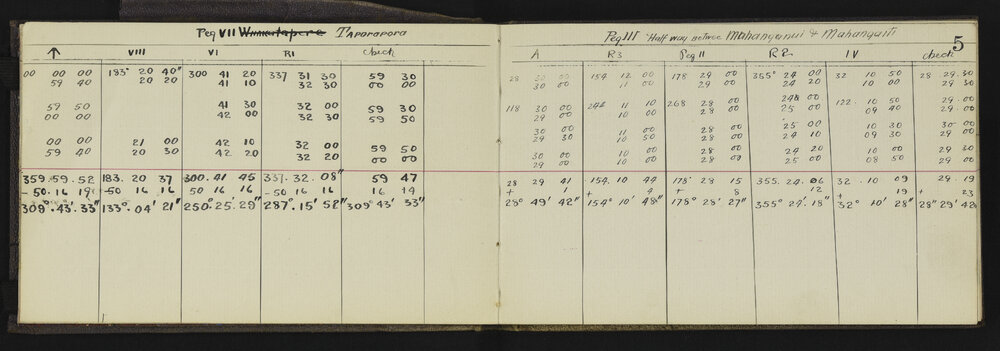 Peg VII Whakatapere Taporapora
↑ VIII VI R1 check
00 00 00 183° 20 40" 300 41 20 337 31 30 59 30
59 40 20 20 41 10 32 30 00 00
59 50 41 30 32 00 59 30
00 00 42 00 32 30 59 50
00 00 21 00 42 10 32 00 59 50
59 40 20 30 42 20 32 20 00 00
359.59.52 183.20 37 300.41 45 337.32.08" 59 47
-50.16 19 -50 16 16 50 16 16 -50 16 16 16 14
309°.43'.33" 133°.04' 21" 250°.25'.29" 287°.15' 52" 309° 43' 33"
Peg III Half way betwee Mahanganui & Mahangaiti
5
A R3 Peg II R2 IV check
28 30 00 154 12 00 178 29 00 355° 24 00 32 10 50 28 29.30
30 00 11 00 29 00 24 20 10 00 29 30
118 30 00 244 11 10 268 28 00 24 00 122.10 50 29.00
29 00 11 00 28 00 25 00 09 40 29.00
30 00 11 00 28 00 25 00 10 30 30.00
29 00 10 50 28 00 24 10 09 30 29 00
30 00 11 00 28 00 24 20 10 00 29 30
29 00 10 00 28 00 25 00 08 50 29 00
28 29 41 .154.10 44 178° 28 15 355.24.06 32.10 09 29.19
+ 1 + 4 + 8 12 19 + 23
28° 49' 42" 154° 10' 48" 178° 28' 27" 355° 24'.18" 32° 10' 28" 28° 29' 42